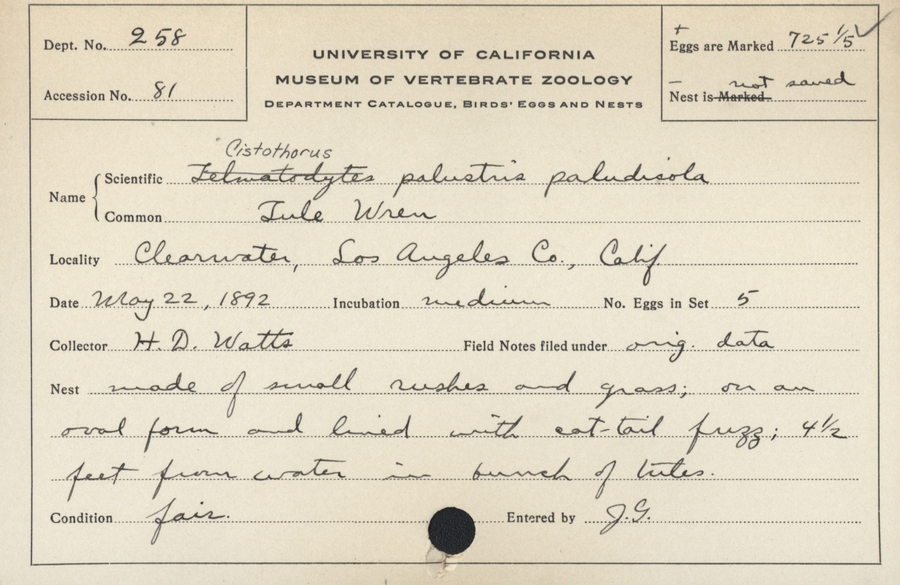 Dept. No. 258
Accession No. 81
UNIVERSITY OF CALIFORNIA
MUSEUM OF VERTEBRATE ZOOLOGY
DEPARTMENT CATALOGUE, BIRDS' EGGS AND NESTS
+
Eggs are Marked 725 1/5 ✓
– not saved
Nest is Marked
Cistothorus
Scientific Telmatodytes palustris paludicola
Name
Common Tule Wren
Locality Clearwater, Los Angeles Co., Calif.
Date May 22, 1892 Incubation medium No. Eggs in Set 5
Collector H. D. Watts Field Notes filed under orig. data
Nest made of small rushes and grass; on an
oval form and lined with cat-tail fuzz; 4 1/2
feet from water in bunch of tules.
Condition fair. Entered by J.G.